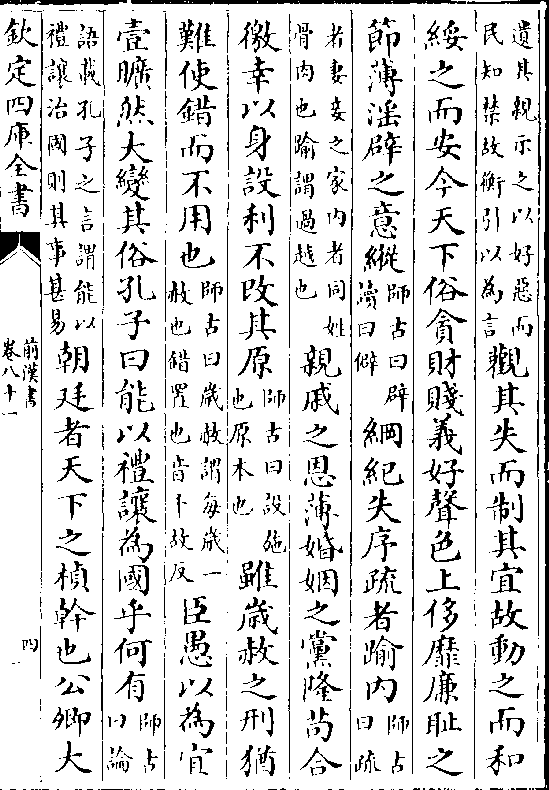 遺其親示之以好惡而
民知禁故衡引以為言
觀其失而制其宜故動之而和
綏之而安今天下俗貪財賤義好聲色上侈靡廉恥之
節薄淫辟之意縱
師古曰辟
讀曰僻
綱紀失序疏者踰内
師古
曰疏
者妻妾之家内者同姓
骨肉也踰謂過越也
親戚之恩薄婚姻之黨隆茍合
徼幸以身設利不改其原
師古曰設施
也原本也
雖歳赦之刑猶
難使錯而不用也
師古曰歳赦謂每歳一
赦也錯置也音千故反
臣愚以為宜
壹曠然大變其俗孔子曰能以禮讓為國乎何有
師古
曰論
語載孔子之言謂能以
禮讓治國則其事甚易
朝廷者天下之楨幹也公卿大
欽定四庫全書
前漢書
卷八十一
四